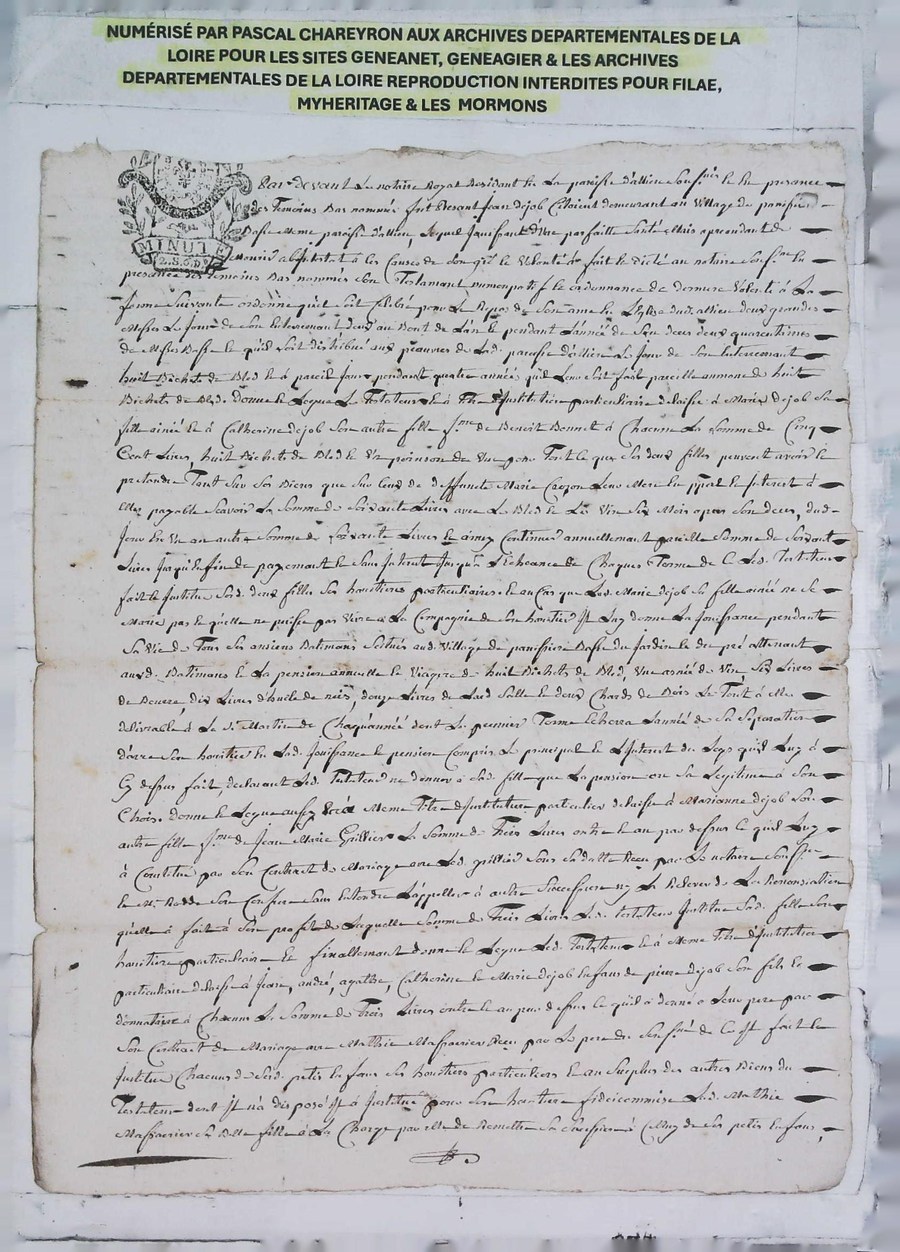 NUMÉRISÉ PAR PASCAL CHAREYRON AUX ARCHIVES DEPARTEMENTALES DE LA
LOIRE POUR LES SITES GENEANET, GENEAGIER & LES ARCHIVES
DEPARTEMENTALES DE LA LOIRE REPRODUCTION INTERDITES POUR FILAE,
MYHERITAGE & LES MORMONS
MINUTE
2.S.6.D.
Pardevant Le notaire Royal Residant En La paroisse d'allieu Sousné Et En presance
des Temoins Bas nommés fut Presant jean dejob demeurant au Village de panissiere
Basse Meme paroisse d'allieu, Lequel jouissant d'Une parfaite Santé Mais aprendant de
Mourir abintestat à les Causes de son gré Et Volonté à fait Et dicté au notaire Sousné En
presance des Temoins Bas nommés Son Testamant Et ordonnance de derniere Volonté à La
forme Suivante ordonne qu'il Soit Celebré pour Le Repos de Son ame En L'Eglise dud. allieu deux grandes
Messes Le Jour de Son Enterremant deux au Bout de L'an Et pendant L'année de Son deces deux quarantaines
de Messes Basses Et qu'il Soit distribué aux pauvres de Lad. paroisse d'allieu Le Jour de Son Enterremant
huit Bichets de Bled Et à pareil Jour pendant quatre années qu'il Leur Soit fait pareille aumone de huit
Bichets de Bled. donne Et Legue Le Testateur Et à Titre d'Institution particuliere delaisse à Marie dejob Sa
fille ainée Et à Catherine dejob Son autre fille fme de Benoit Bonnet à Chacune La Somme de Cinq
Cent Livres, huit Bichets de Bled Et Un poinson de Vin pour Tout Ce que Ses deux filles peuvent avoir Et
pretandre Tant Sur Ses Biens que Sur Ceux de deffuncte Marie Leur Mere En ppal Et Interest à
Elles payable Scavoir La Somme de Soixante Livres avec Le Bled Et Le Vin Six Mois apres Son deces, dud.
Jour En Un an autre Somme de Soixante Livres Et ainsy Continuer annuellemant pareille Somme de Soixant
Livres Jusqu'a fin de payemant Et Sans Interest Jusqu'a L'Echeance de Chaque Terme de Ce Led. Testateur
fait Et Institue Sesd. deux filles Ses heritieres particulieres. Et au Cas que Lad. Marie dejob Sa fille ainée ne Se
Marie pas Et qu'elle ne puisse pas Vivre à La Compagnie de Son heritier Il Luy donne La Jouissance pendant
Sa Vie de Tous Ses anciens Batimans Scitués aud. Village de panissiere Basse du Jardin Et du pré attenant
auxd. Batimans Et La pension annuelle Et Viagere de huit Bichets de Bled, Une asnée de Vin, Six Livres
de Beurre dix Livres d'huile de noix, douze Livres de Lard Salle Et deux Chards de Bois Le Tout à Elle
delivrable à La St. Martin de Chaqu'année dont Le premier Terme Echerra L'année de Sa Separation
d'avec Son heritier En Lad. Jouissance Et pension Compris Le principal Et L'Interest du Legs qu'il Luy à
Cy dessus fait, declarant Led. Testateur ne donner à Sad. fille que La pension ou Sa Legitime à Son
Choix. donne Et Legue aussy Et à Meme Titre d'Institution particuliere delaisse à Marianne dejob Son
autre fille fme de Jean Marie Grillier La Somme de Trois Livres outre Et au par dessus Ce qu'il Luy
à Constitué par Son Contract de Mariage avec Led. Grillier Sous Sa datte Reçu par Le notaire Sousné
Et Me. Rodde Son Confrere Sans Entendre L'appeller à autre Succession ny La Relever de La Renonciation
qu'elle à fait à Son profit de Lequelle Somme de Trois Livres Led. Testateur Institue Sad. fille Son
heritiere particuliere Et finallemant donne Et Legue Led. Testateur Et à Meme Titre d'Institution
particuliere delaisse à Jean, andré, agathe, Catherine Et Marie dejob Enfans de pierre dejob Son fils Et
donnataire à Chacun La Somme de Trois Livres outre Et au par dessus Ce qu'il à donné à Leur pere par
Son Contract de Mariage avec Mathie Massacrier Reçu par Le pere du Sousné de Ce Il fait Et
Institue Chacun de Sesd. petits Enfans Ses heritiers particuliers Et au Surplus des autres Biens du
Testateur dont Il n'à disposé Il à Institué pour Son heritiere fideicommise Lad. Mathie
Massacrier Sa Belle fille à La Charge par Elle de Remettre Sa Succession à Celluy de Ses petits Enfans,